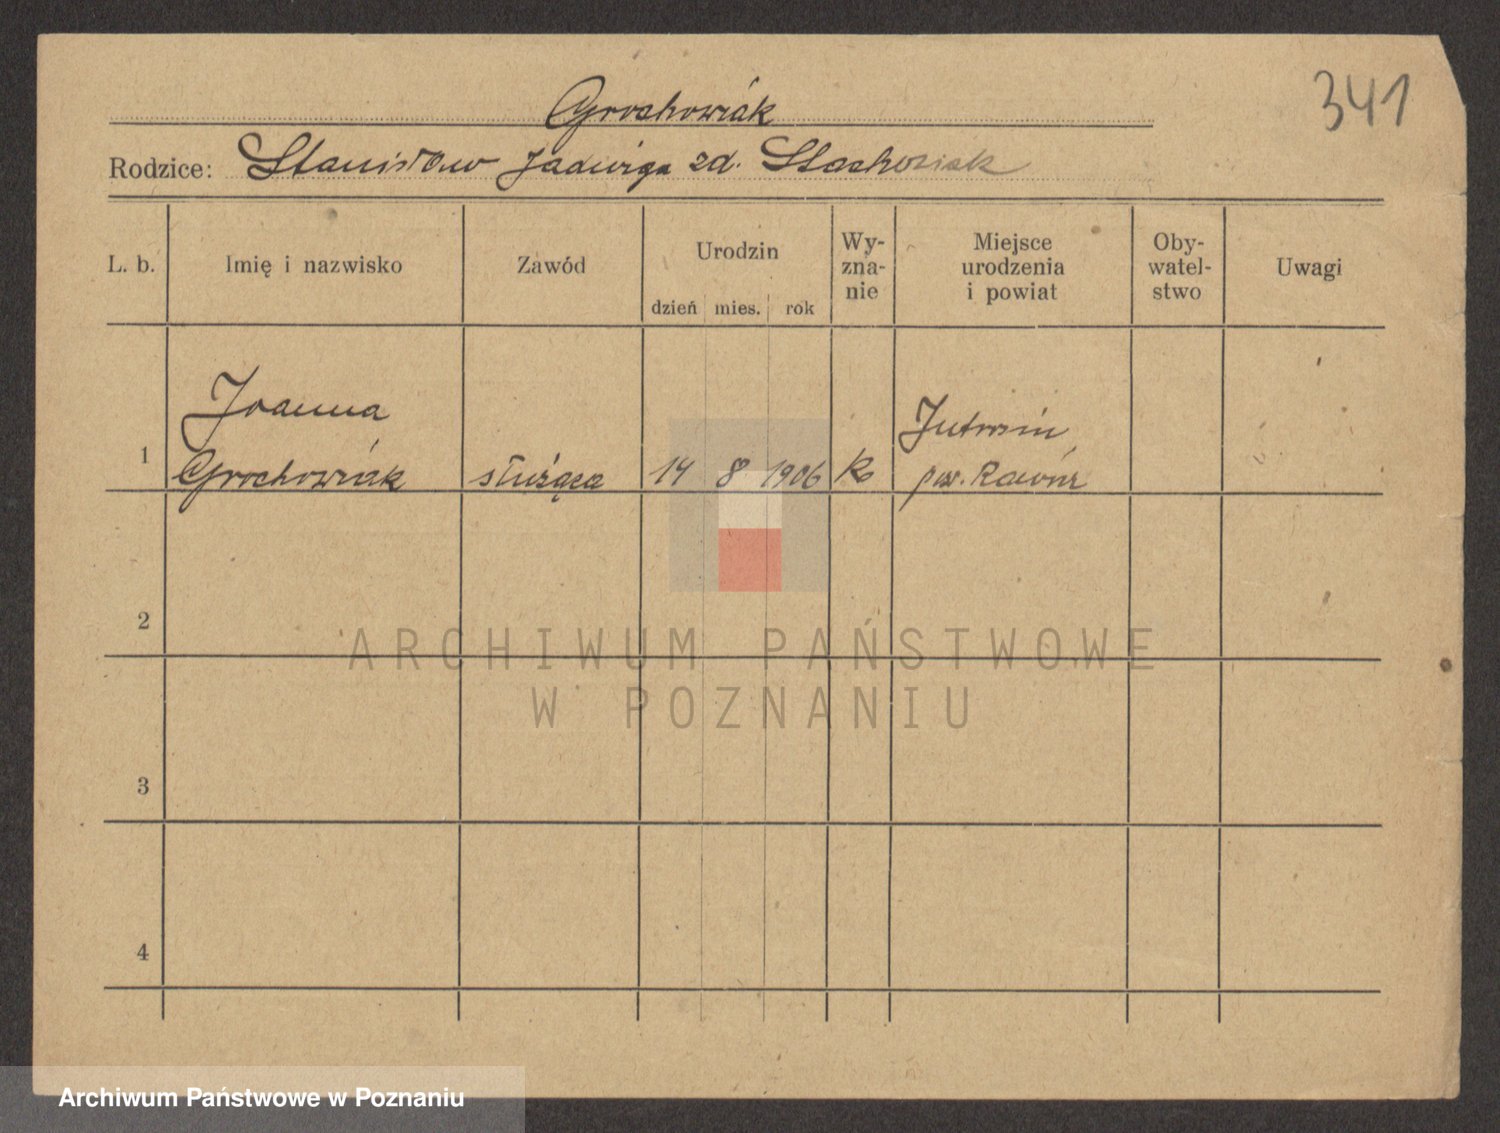 341
Grochowiak
Rodzice: Stanisław Jadwiga zd. Stachowiak
L. b.
Imię i nazwisko
Zawód
Urodzin
dzień mies. rok
Wy-
zna-
nie
Miejsce
urodzenia
i powiat
Oby-
watel-
stwo
Uwagi
1
Joanna
Grochowiak
służąca
14 8 1906
Jutrosin
pow. Rawicz
2
3
4
ARCHIWUM PAŃSTWOWE
W POZNANIU
Archiwum Państwowe w Poznaniu